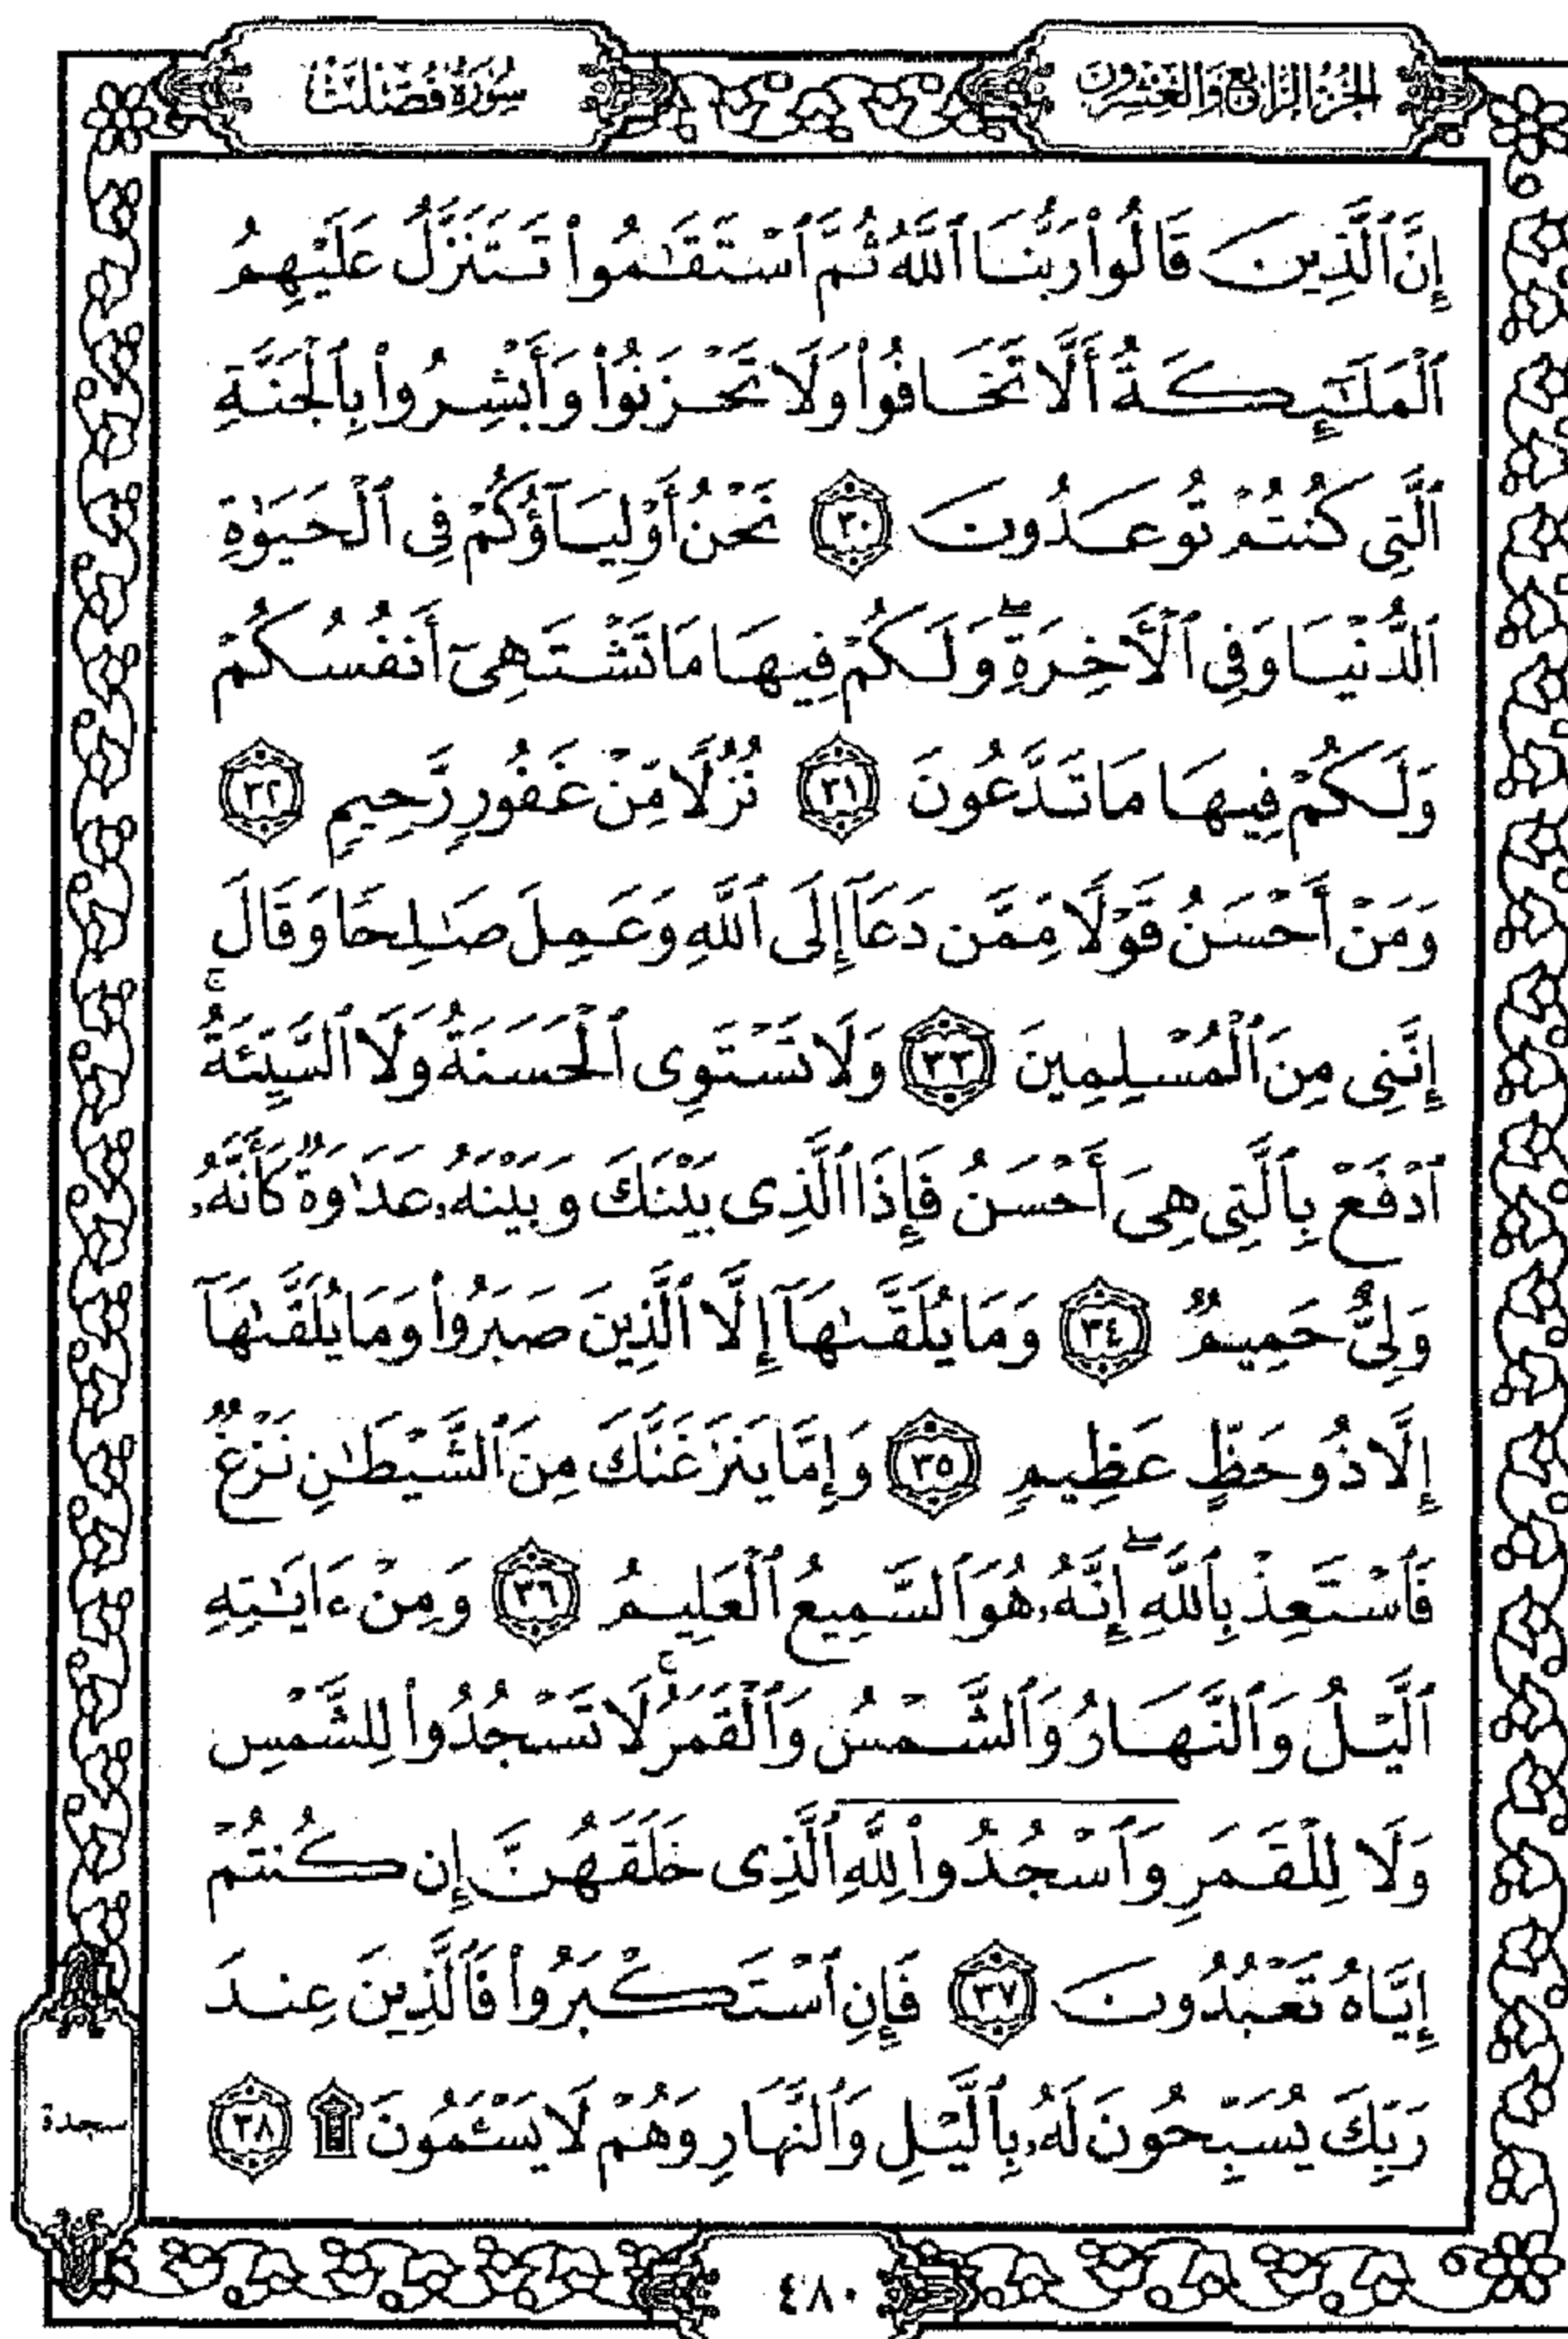 الجزء الرابع والعشرون
سورة فصلت
إِنَّ ٱلَّذِينَ قَالُوا۟ رَبُّنَا ٱللَّهُ ثُمَّ ٱسْتَقَٰمُوا۟ تَتَنَزَّلُ عَلَيْهِمُ
ٱلْمَلَٰٓئِكَةُ أَلَّا تَخَافُوا۟ وَلَا تَحْزَنُوا۟ وَأَبْشِرُوا۟ بِٱلْجَنَّةِ
ٱلَّتِى كُنتُمْ تُوعَدُونَ ٣٠ نَحْنُ أَوْلِيَآؤُكُمْ فِى ٱلْحَيَوٰةِ
ٱلدُّنْيَا وَفِى ٱلْأَخِرَةِ ۖ وَلَكُمْ فِيهَا مَا تَشْتَهِىٓ أَنفُسُكُمْ
وَلَكُمْ فِيهَا مَا تَدَّعُونَ ٣١ نُزُلًا مِّنْ غَفُورٍ رَّحِيمٍ ٣٢
وَمَنْ أَحْسَنُ قَوْلًا مِّمَّن دَعَآ إِلَى ٱللَّهِ وَعَمِلَ صَٰلِحًا وَقَالَ
إِنَّنِى مِنَ ٱلْمُسْلِمِينَ ٣٣ وَلَا تَسْتَوِى ٱلْحَسَنَةُ وَلَا ٱلسَّيِّئَةُ ۚ
ٱدْفَعْ بِٱلَّتِى هِىَ أَحْسَنُ فَإِذَا ٱلَّذِى بَيْنَكَ وَبَيْنَهُۥ عَدَٰوَةٌ كَأَنَّهُۥ
وَلِىٌّ حَمِيمٌ ٣٤ وَمَا يُلَقَّىٰهَآ إِلَّا ٱلَّذِينَ صَبَرُوا۟ وَمَا يُلَقَّىٰهَآ
إِلَّا ذُو حَظٍّ عَظِيمٍ ٣٥ وَإِمَّا يَنزَغَنَّكَ مِنَ ٱلشَّيْطَٰنِ نَزْغٌ
فَٱسْتَعِذْ بِٱللَّهِ ۖ إِنَّهُۥ هُوَ ٱلسَّمِيعُ ٱلْعَلِيمُ ٣٦ وَمِنْ ءَايَٰتِهِ
ٱلَّيْلُ وَٱلنَّهَارُ وَٱلشَّمْسُ وَٱلْقَمَرُ ۚ لَا تَسْجُدُوا۟ لِلشَّمْسِ
وَلَا لِلْقَمَرِ وَٱسْجُدُوا۟ لِلَّهِ ٱلَّذِى خَلَقَهُنَّ إِن كُنتُمْ
إِيَّاهُ تَعْبُدُونَ ٣٧ فَإِنِ ٱسْتَكْبَرُوا۟ فَٱلَّذِينَ عِندَ
رَبِّكَ يُسَبِّحُونَ لَهُۥ بِٱلَّيْلِ وَٱلنَّهَارِ وَهُمْ لَا يَسْـَٔمُونَ ۩ ٣٨
سجدة
٤٨٠